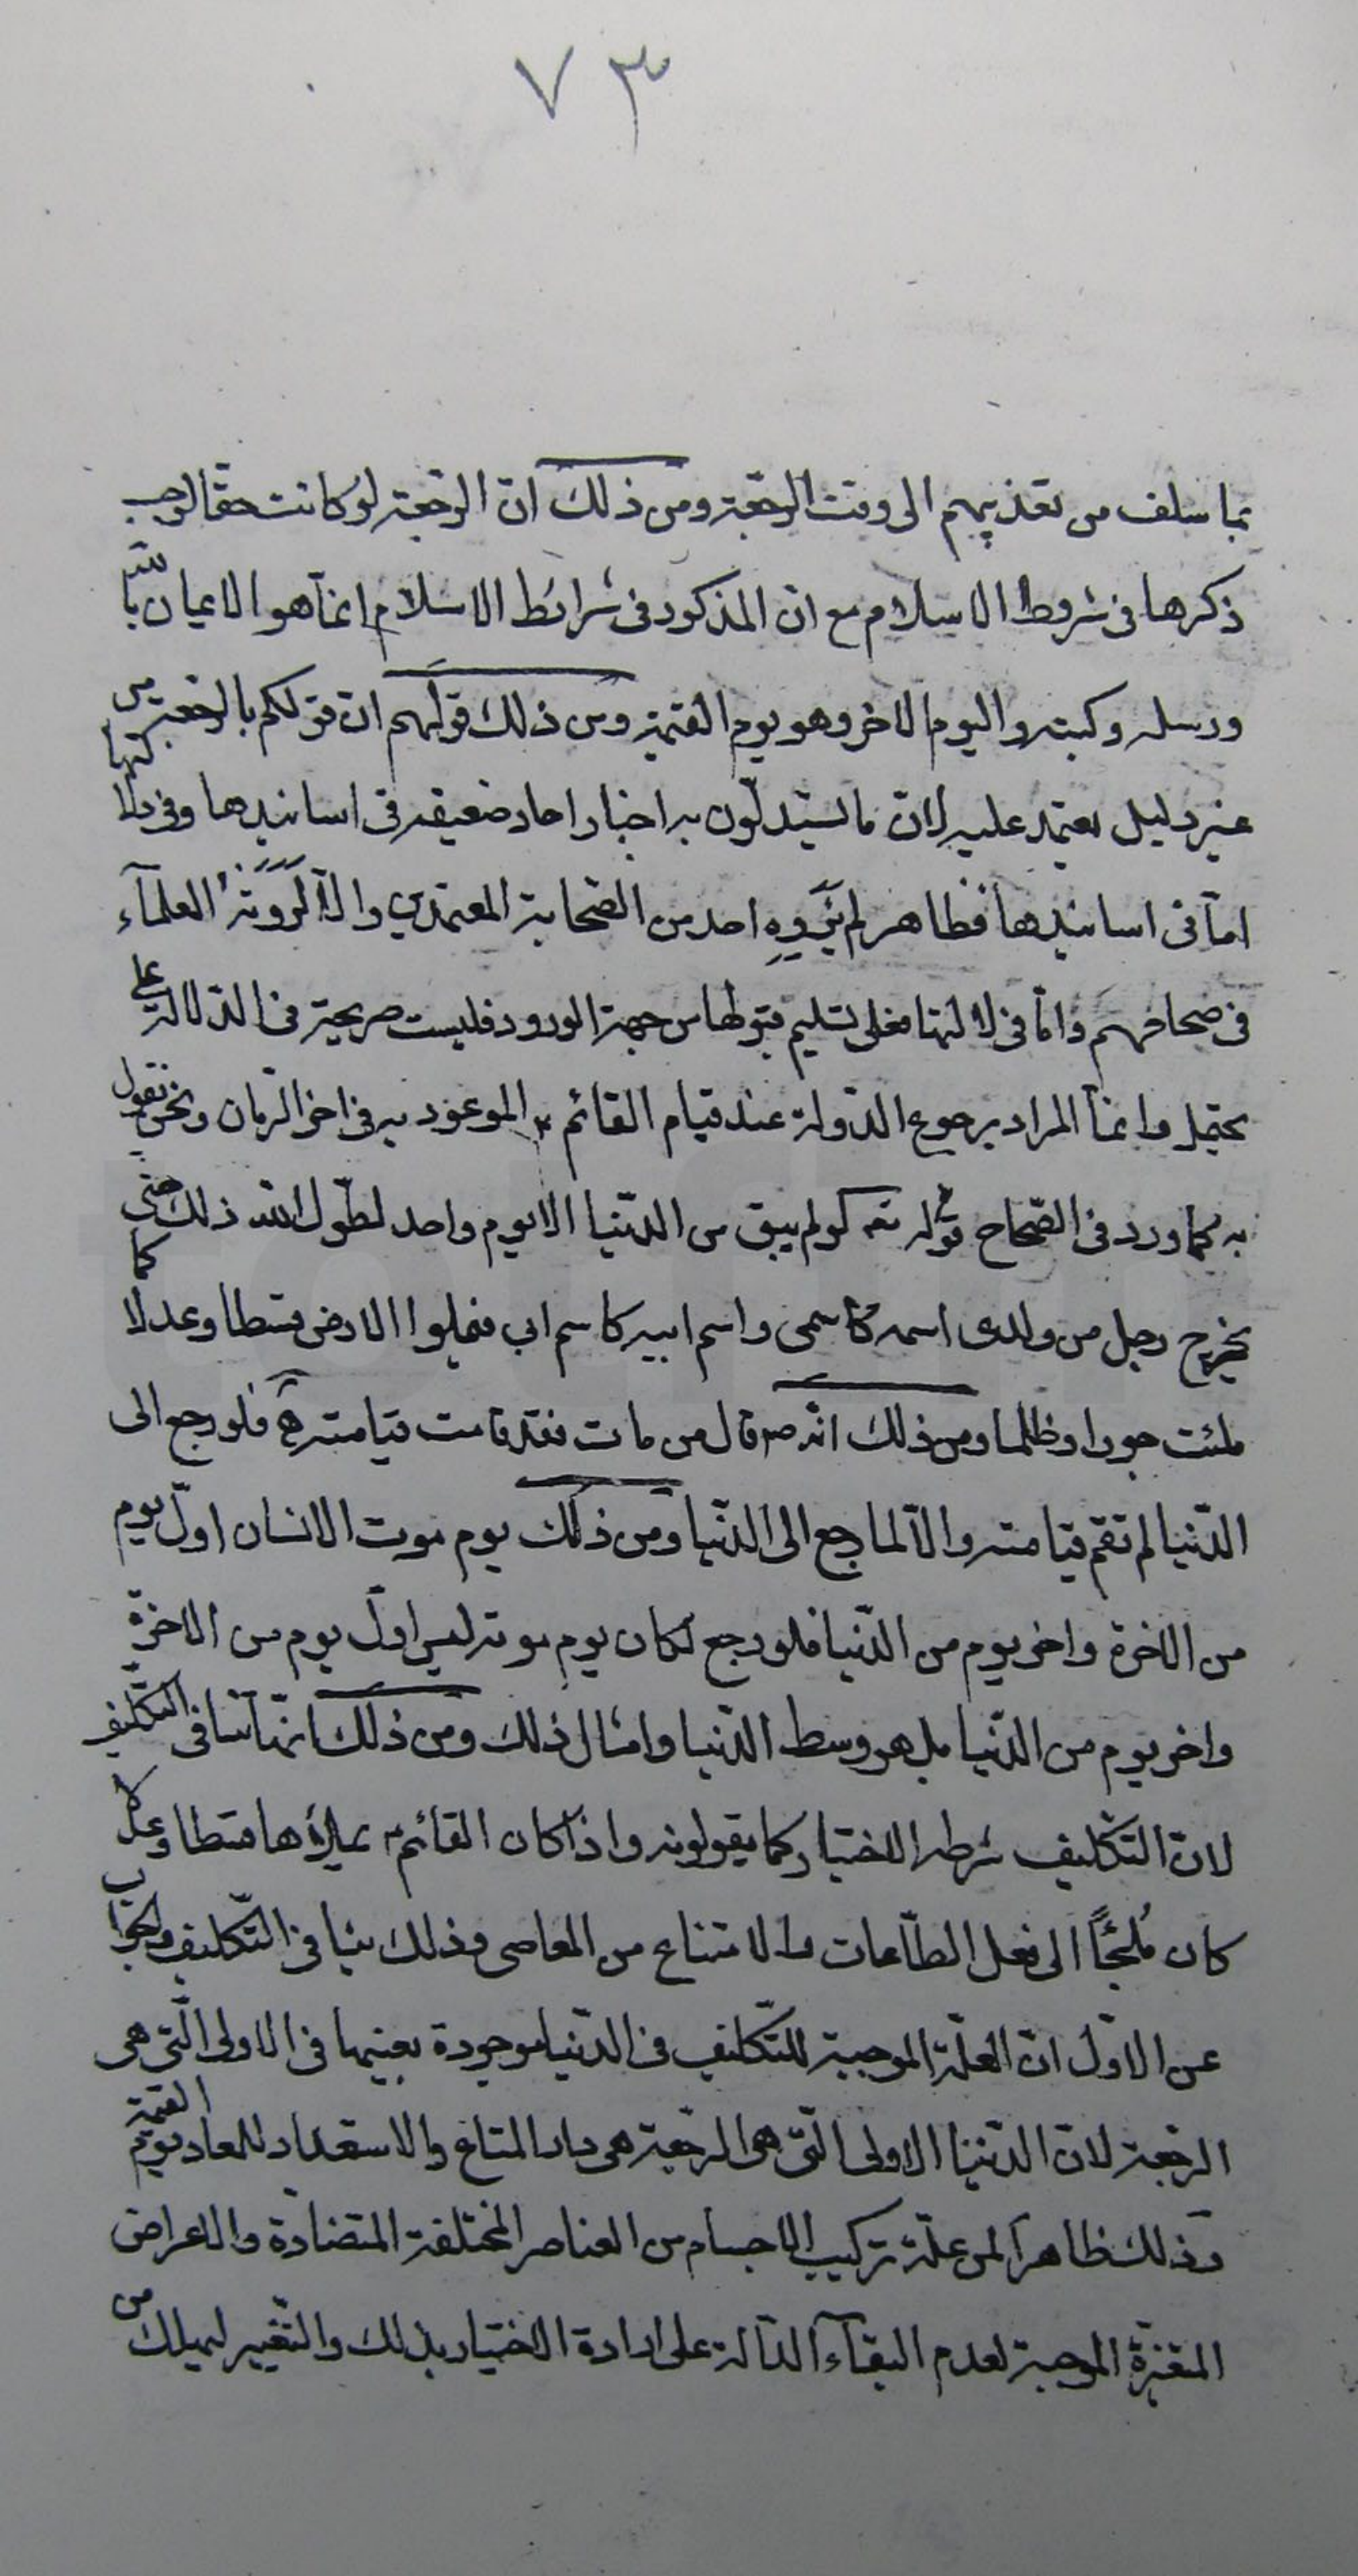 ٧٣
بما سلف من تعذيبهم الى وقت الرجعة ومن ذلك ان الرجعة لو كانت حقا لوجب
ذكرها فى شروط الاسلام مع ان المذكور فى شرائط الاسلام انمآ هو الايمان بالله
ورسله وكتبه واليوم الاخر وهو يوم القيمة ومن ذلك قولهم ان قولكم بالرجعة من
غير دليل يعتمد عليه لان ما تستدلّون به اخبار احاد ضعيفة فى اسانيدها وفى دلالاتها
امآ فى اسانيدها فظاهر لم يَروِهِ احد من الصّحابة المعتمدين والّا لَرَوَتْهُ العلمآء
فى صحاحهم وامّا فى دلالتها فعلى تسليم قبولها من جهة الورود فليست صريحة فى الدّلالة على
يحتمل وانمآ المراد برجوع الدّولة عند قيام القائم الموعود به فى اخر الزمان ونحن نقول
به كما ورد فى الصّحاح قوله لو لم يبق من الدّنيا الا يوم واحد لطوّل الله ذلك حتى
يخرج رجل من ولدى اسمه كاسمى واسم ابيه كاسم ابى فيملؤا الارض قسطا وعدلا كما
ملئت جورا وظلما ومن ذلك انّه ص قال من مات فقد قامت قيامته فلو رجع الى
الدّنيا لم تقم قيامته والّا لما رجع الى الدّنيا ومن ذلك يوم موت الانسان اوّل يوم
من الاخرة واخر يوم من الدّنيا فلو رجع لكان يوم موته ليس اوّل يوم من الاخرة
واخر يوم من الدّنيا بل هو وسط الدّنيا وامثال ذلك ومن ذلك انهّا تنافى التكليف
لانّ التكليف شرطه الاختيار كما يقولونه واذا كان القائم ع يملؤها قسطا وعدلا
كان مُلجئاً الى فعل الطّاعات والامتناع من المعاصى وذلك ينافى التّكليف والجواب
عن الاوّل انّ العلّة الموجبة للتّكليف فى الدّنيا موجودة بعينها فى الاولى الّتى هى
الرجعة لانّ الدّنيا الاولى الّتى هى الرجعة هى دار المتاع والاستعداد للمعاد يوم القيمة
وذلك ظاهر لمن علّة تركيب الاجسام من العناصر المختلفة المتضادّة والاعراض
المتغيرة الموجبة لعدم البقآء الدّالة على ارادة الاختيار بذلك والتّغيير ليهلك من